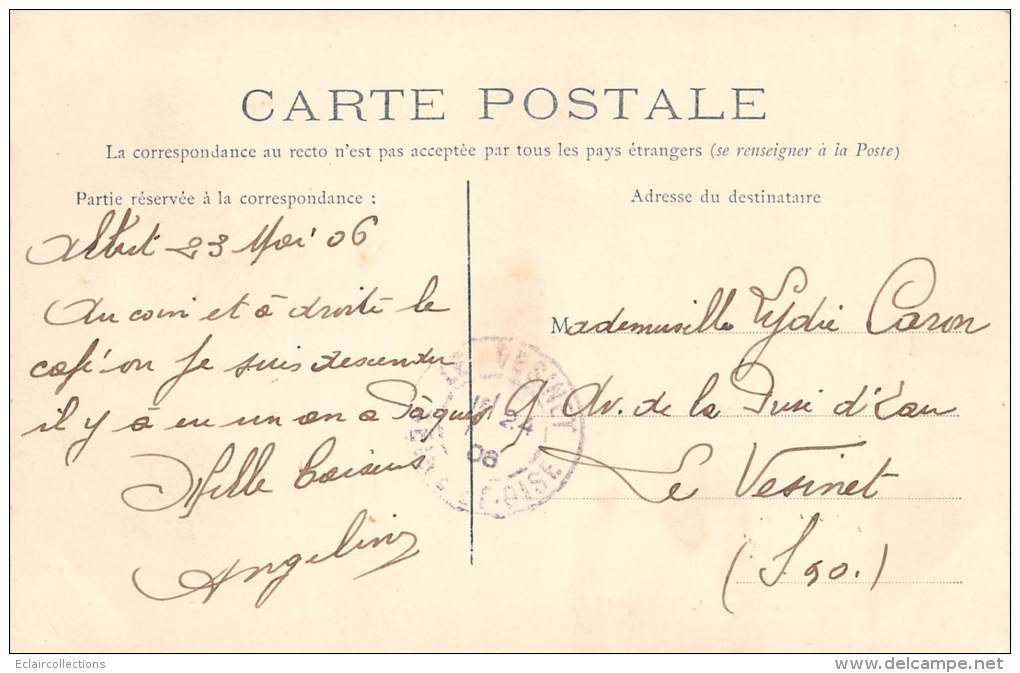 CARTE POSTALE
La correspondance au recto n'est pas acceptée par tous les pays étrangers (se renseigner à la Poste)
Partie réservée à la correspondance :
Albert 23 Mai 06
Au coin et à droite le
café où je suis descendu
il y à eu un an a Pâques
Mille baisers
Angelina
Adresse du destinataire
Mademoiselle Lydie Caron
9 Av. de la Prise d'Eau
Le Vesinet
(S &o.)
LE VESINET
24
06
S.-ET-OISE
Eclaircollections
www.delcampe.net